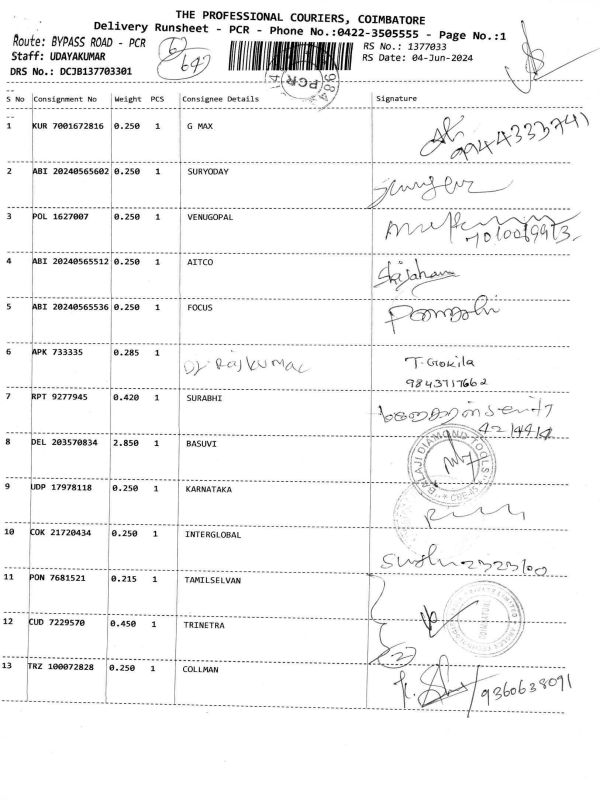 THE PROFESSIONAL COURIERS, COIMBATORE
Delivery Runsheet - PCR - Phone No.:0422-3505555 - Page No.:1
Route: BYPASS ROAD - PCR
RS No.: 1377033
Staff: UDAYAKUMAR
RS Date: 04-Jun-2024
DRS No.: DCJB137703301
PCR
S No Consignment No Weight PCS Consignee Details Signature
1 KUR 7001672816 0.250 1 G MAX
9944333741
2 ABI 20240565602 0.250 1 SURYODAY
3 POL 1627007 0.250 1 VENUGOPAL
4 ABI 20240565512 0.250 1 AITCO
5 ABI 20240565536 0.250 1 FOCUS
6 APK 733335 0.285 1 Dr. RAJKUMAR T. Gokila
9843717662
7 RPT 9277945 0.420 1 SURABHI
8 DEL 203570834 2.850 1 BASUVI
BALAJI DIAMOND TOOLS
9 UDP 17978118 0.250 1 KARNATAKA
10 COK 21720434 0.250 1 INTERGLOBAL
11 PON 7681521 0.215 1 TAMILSELVAN
12 CUD 7229570 0.450 1 TRINETRA
13 TRZ 100072828 0.250 1 COLLMAN
9360638091